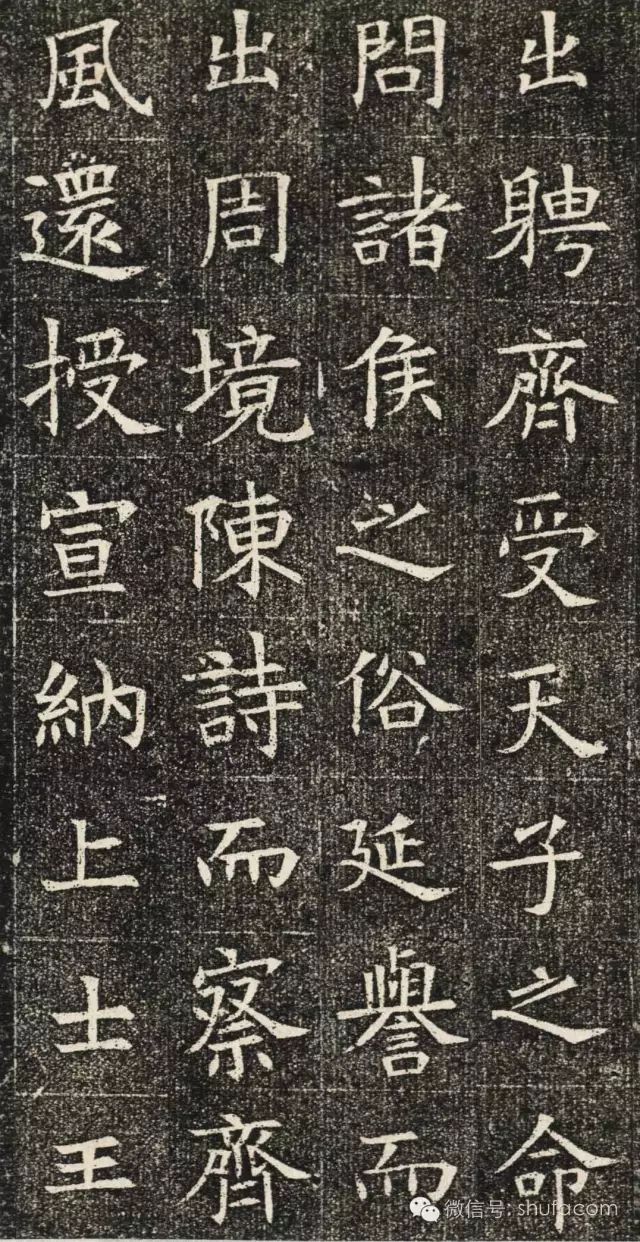 出聘齊受天子之命
問諸侯之俗延譽而
出周境陳詩而察齊
風還授宣納上士王
微信号: shufacom